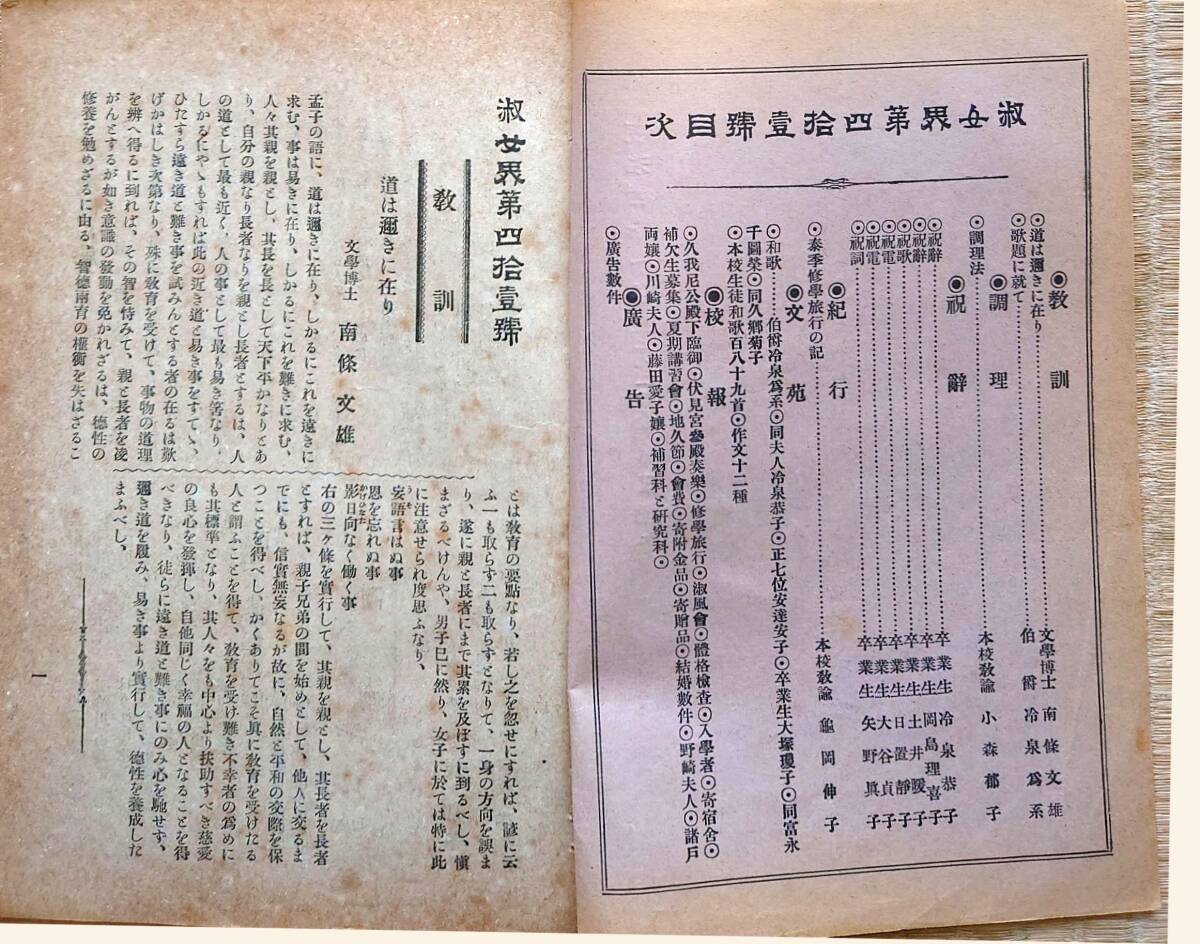 淑女界第四拾壹號目次
◉教訓
⦿道は邇きに在り‥‥‥‥文學博士 南條文雄
⦿歌題に就て‥‥‥‥伯爵 冷泉爲系
◉調理
⦿調理法‥‥‥‥本校教諭 小森郁子
◉祝辭
⦿祝辭‥‥‥‥卒業生 冷泉恭子
⦿祝辭‥‥‥‥卒業生 岡島理喜子
⦿祝歌‥‥‥‥卒業生 土井暖子
⦿祝電‥‥‥‥卒業生 日置靜子
⦿祝電‥‥‥‥卒業生 大谷貞子
⦿祝詞‥‥‥‥卒業生 矢野眞子
◉紀行
⦿春季修學旅行の記‥‥‥‥本校教諭 龜岡伸子
◉文苑
⦿和歌‥‥‥‥伯爵冷泉爲系⦿同夫人冷泉恭子⦿正七位安達安子⦿卒業生大塚瓊子⦿同富永
千圖榮⦿同久郷菊子
⦿本校生徒和歌百八十九首⦿作文十二種
◉校報
⦿久我尼公殿下臨御⦿伏見宮參殿奏樂⦿修學旅行⦿淑風會⦿體格檢査⦿入學者⦿寄宿舍⦿
補欠生募集⦿夏期講習會⦿地久節⦿會費⦿寄附金品⦿寄贈品⦿結婚數件⦿野崎夫人⦿諸戸
兩孃⦿川崎夫人⦿藤田愛子孃⦿補習科と研究科⦿
◉廣告
⦿廣告數件
淑女界第四拾壹號
教訓
道は邇きに在り
文學博士 南條文雄
孟子の語に、道は邇きに在り、しかるにこれを遠きに
求む、事は易きに在り、しかるにこれを難きに求む、
人々其親を親とし、其長を長として天下平かなりとあ
り、自分の親なり長者なりを親とし長者とするは、人
の道として最も近く、人の事として最も易き筈なり、
しかるにやゝもすれば此の近き道と易き事をすてゝ、
ひたすら遠き道と難き事を試みんとする者の在るは歎
げかはしき次第なり、殊に教育を受けて、事物の道理
を辨へ得るに到れば、その智を恃みて、親と長者を凌
がんとするが如き意識の發動を免かれざるは、德性の
修養を勉めざるに由る、智德兩育の權衡を失はざるこ
とは教育の要點なり、若し之を忽せにすれば、諺に云
ふ一も取らず二も取らずとなりて、一身の方向を誤ま
り、遂に親と長者にまで其累を及ぼすに到るべし、愼
まざるべけんや、男子已に然り、女子に於ては特に此
に注意せられ度思ふなり、
妄語言はぬ事
恩を忘れぬ事
影日向なく働く事
右の三ヶ條を實行して、其親を親とし、其長者を長者
とすれば、親子兄弟の間を始めとして、他人に交るま
でにも、信實無妄なるが故に、自然と平和の交際を保
つことを得べし、かくありてこそ眞に教育を受けたる
人と謂ふことを得て、教育を受け難き不幸者の爲めに
も其標準となり、其人々をも中心より扶助すべき慈愛
の良心を發揮し、自他同じく幸福の人となることを得
べきなり、徒らに遠き道と難き事にのみ心を馳せず、
邇き道を履み、易き事より實行して、德性を養成した
まふべし、
一